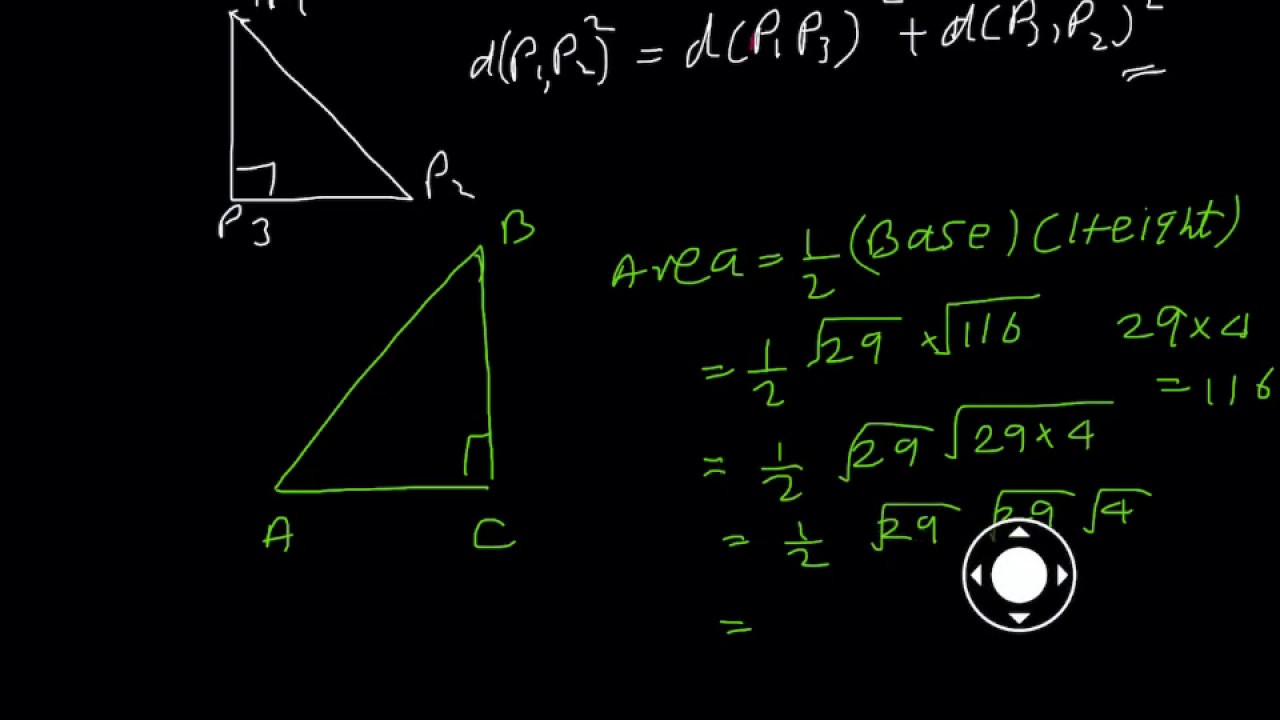 d(P₁,P₂)² = d(P₁P₃)² + d(P₃,P₂)²
P₂
P₃
B
Area = 1/2 (Base) (Height)
= 1/2 √29 × √116 29×4
= 116
= 1/2 √29 √29×4
A C
= 1/2 √29 √29 √4
=